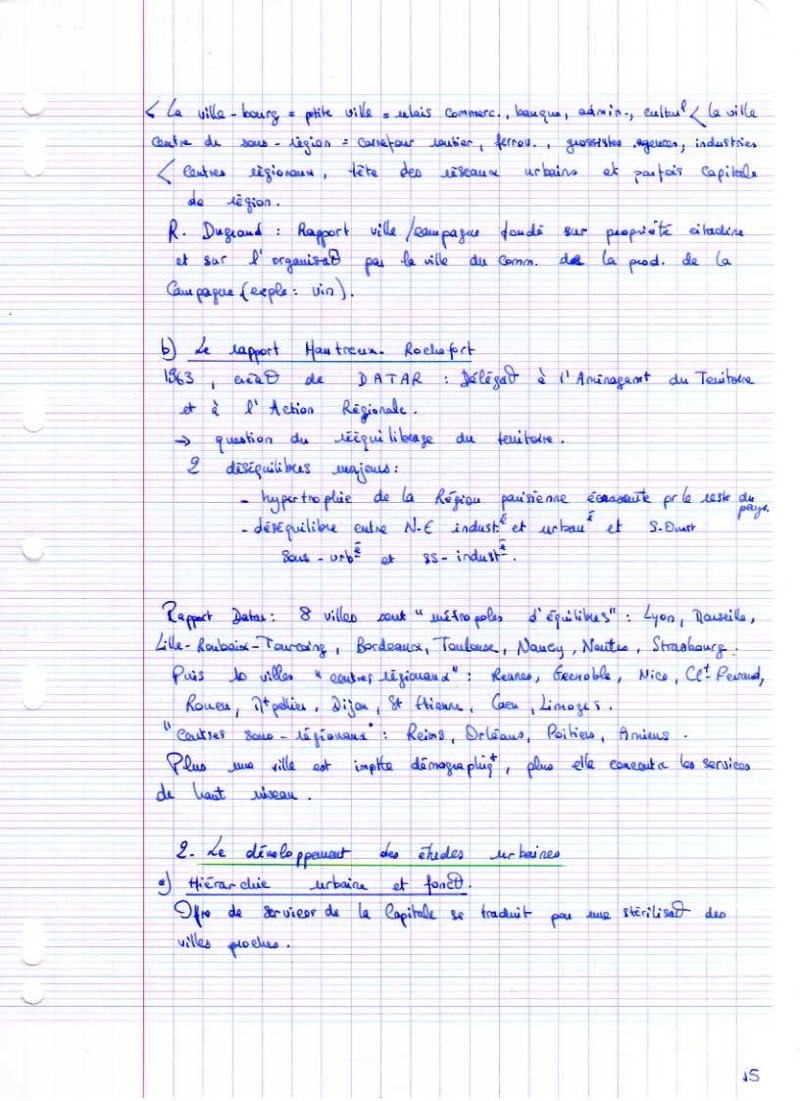 < La ville-bourg = petite ville = relais commerc., banque, admin., culturl < la ville
centre de sous-région = carrefour routier, ferrov., grossistes agences, industries
< centres régionaux, tête des réseaux urbains et parfois capitale
de région.
R. Dugrand : Rapport ville/campagne fondé sur propriété citadine
et sur l'organisat° par la ville du comm. de la prod. de la
Campagne (exple : vin).
b) Le rapport Hautreux-Rochefort
1963, créat° de DATAR : Délégat° à l'Aménagemt du Territoire
et à l'Action Régionale.
→ question du rééquilibrage du territoire.
2 déséquilibres majeurs :
- hypertrophie de la Région parisienne écrasante pr le reste du
pays.
- déséquilibre entre N-E indust.é et urban é et S-Ouest
sous-urbé et ss-industé.
Rapport Datar : 8 villes sont "métropoles d'équilibres" : Lyon, Marseille,
Lille-Roubaix-Tourcoing, Bordeaux, Toulouse, Nancy, Nantes, Strasbourg.
Puis 10 villes "centres régionaux" : Rennes, Grenoble, Nice, Clt Ferrand,
Rouen, Mtpellier, Dijon, St Etienne, Caen, Limoges.
"Centres sous-régionaux" : Reims, Orléans, Poitiers, Amiens.
Plus une ville est imptte démographiqt, plus elle concentre les services
de haut niveau.
2. Le développement des études urbaines
a) Hiérarchie urbaine et fonct°.
Offre de services de la Capitale se traduit par une stérilisat° des
villes proches.
15